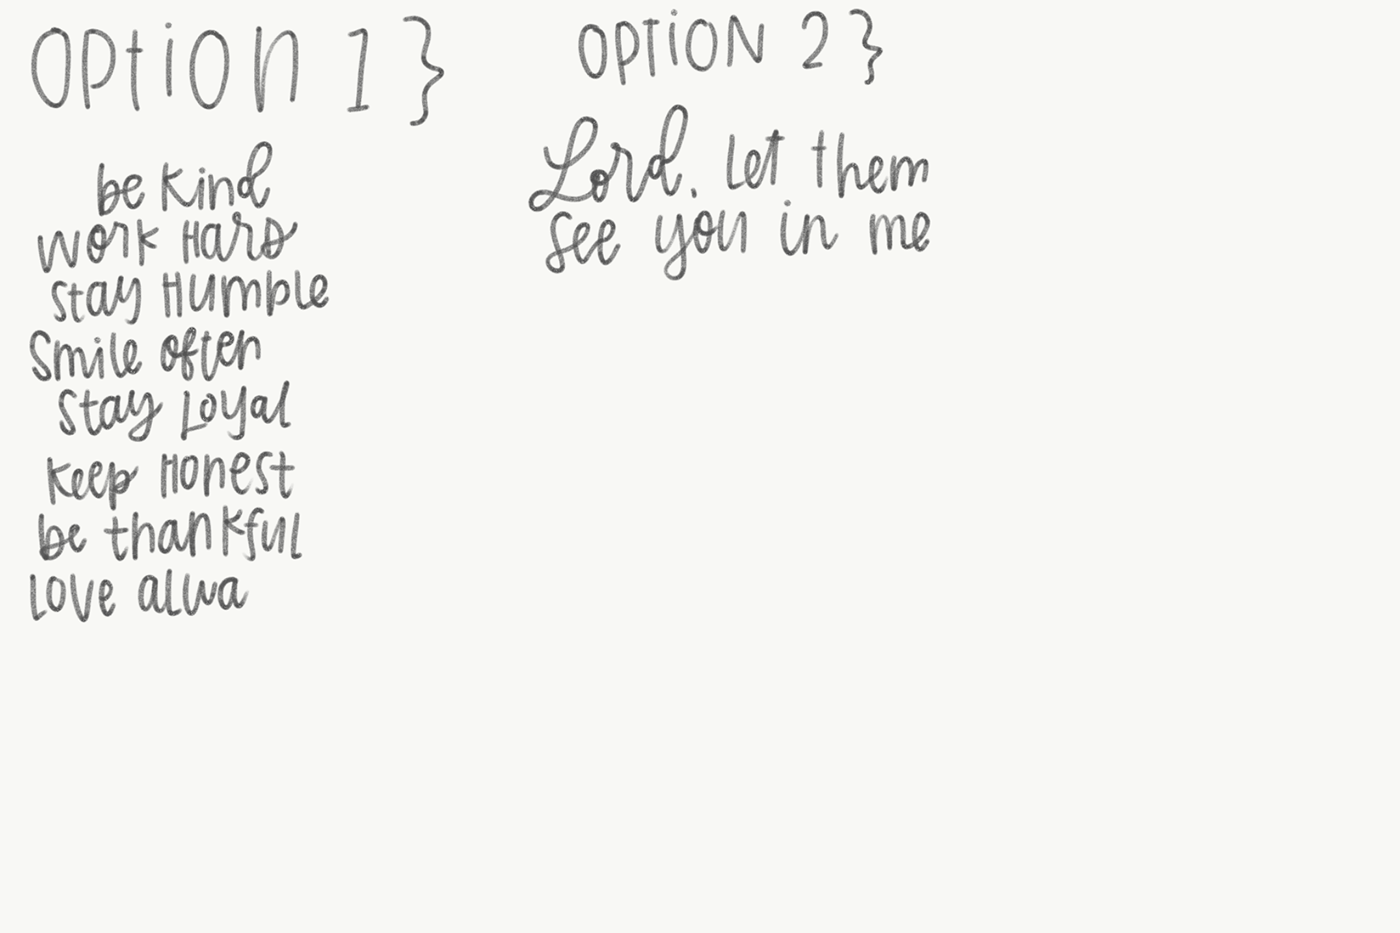 OPtiOn 1 }
be kind
work Hard
stay Humble
Smile often
stay Loyal
keep Honest
be thankful
Love alwa
OPTiON 2 }
Lord, let them
see you in me